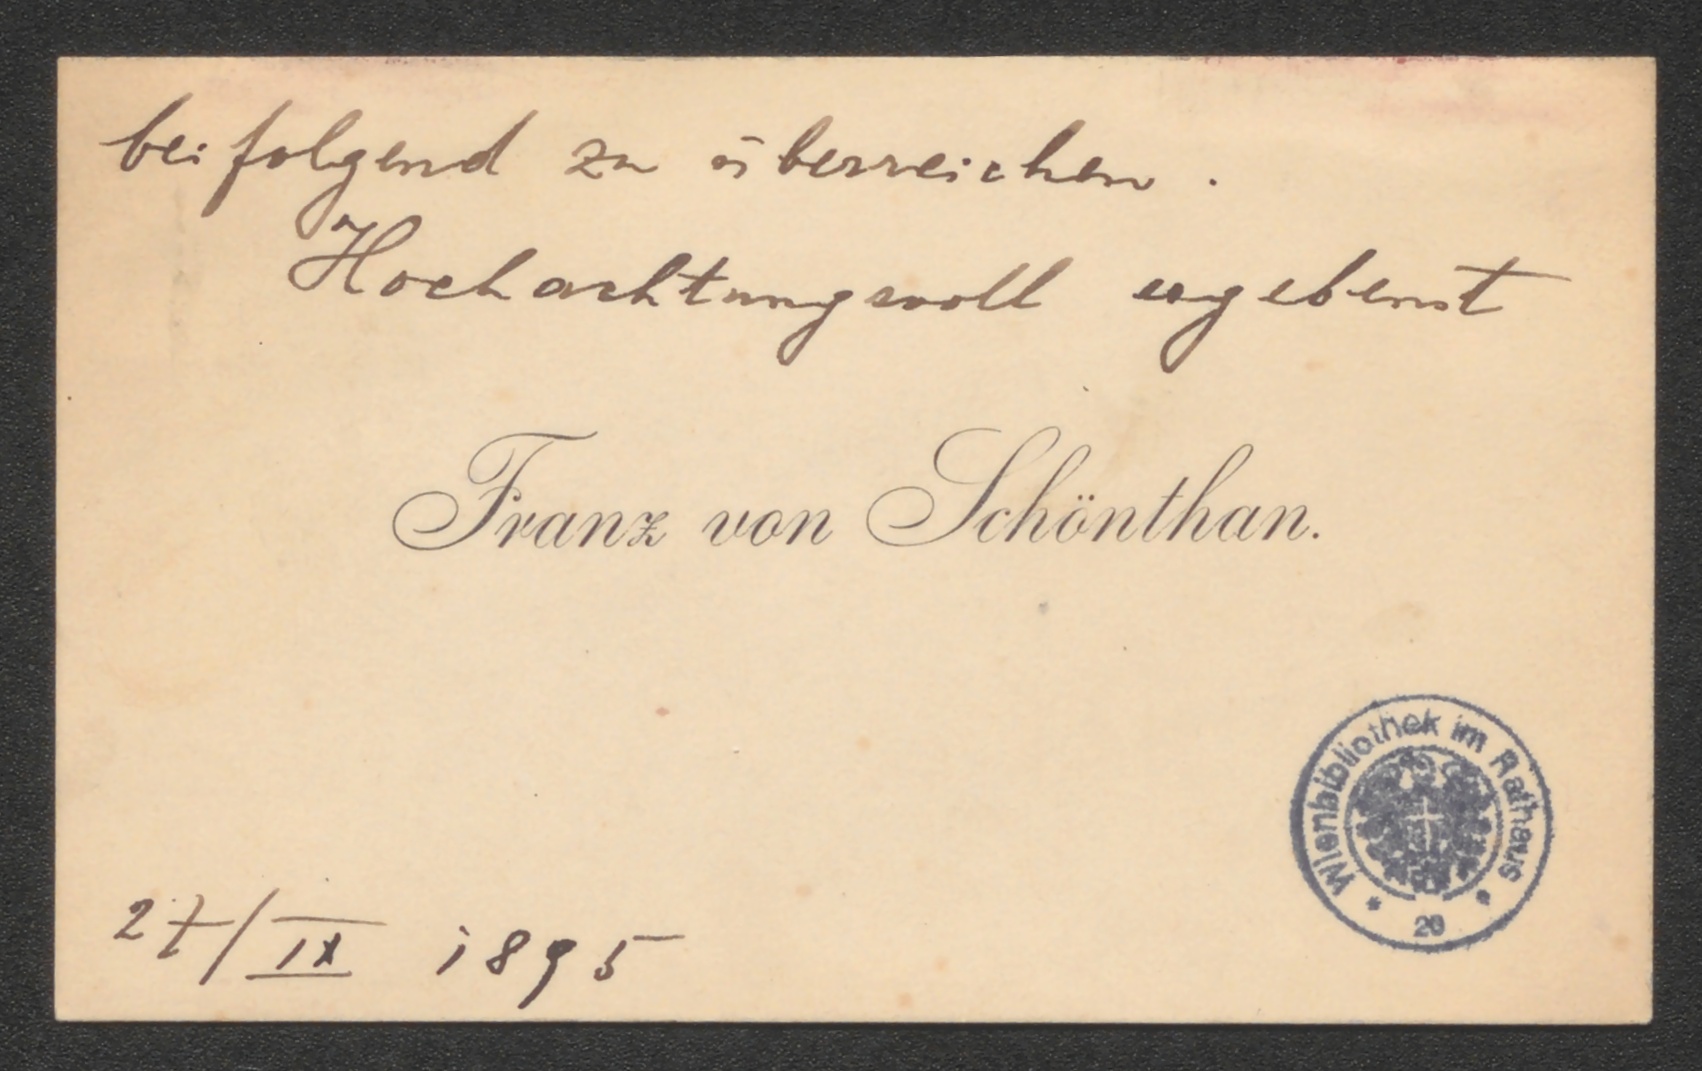 beifolgend zu überreichen.
Hochachtungsvoll ergebenst
Franz von Schönthan.
Wienbibliothek im Rathaus
* 20 *
27/IX 1895